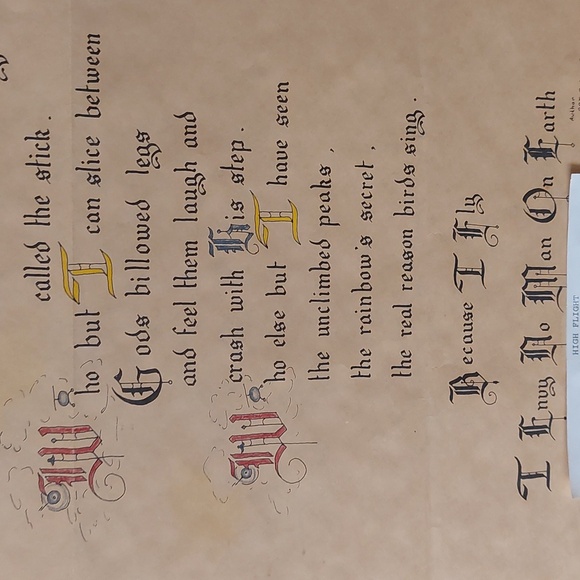 called the stick.
Who but I can slice between
Gods billowed legs
and feel them laugh and
crash with His step.
Who else but I have seen
the unclimbed peaks,
the rainbow's secret,
the real reason birds sing.
Because I Fly
I Envy No Man On Earth
HIGH FLIGHT